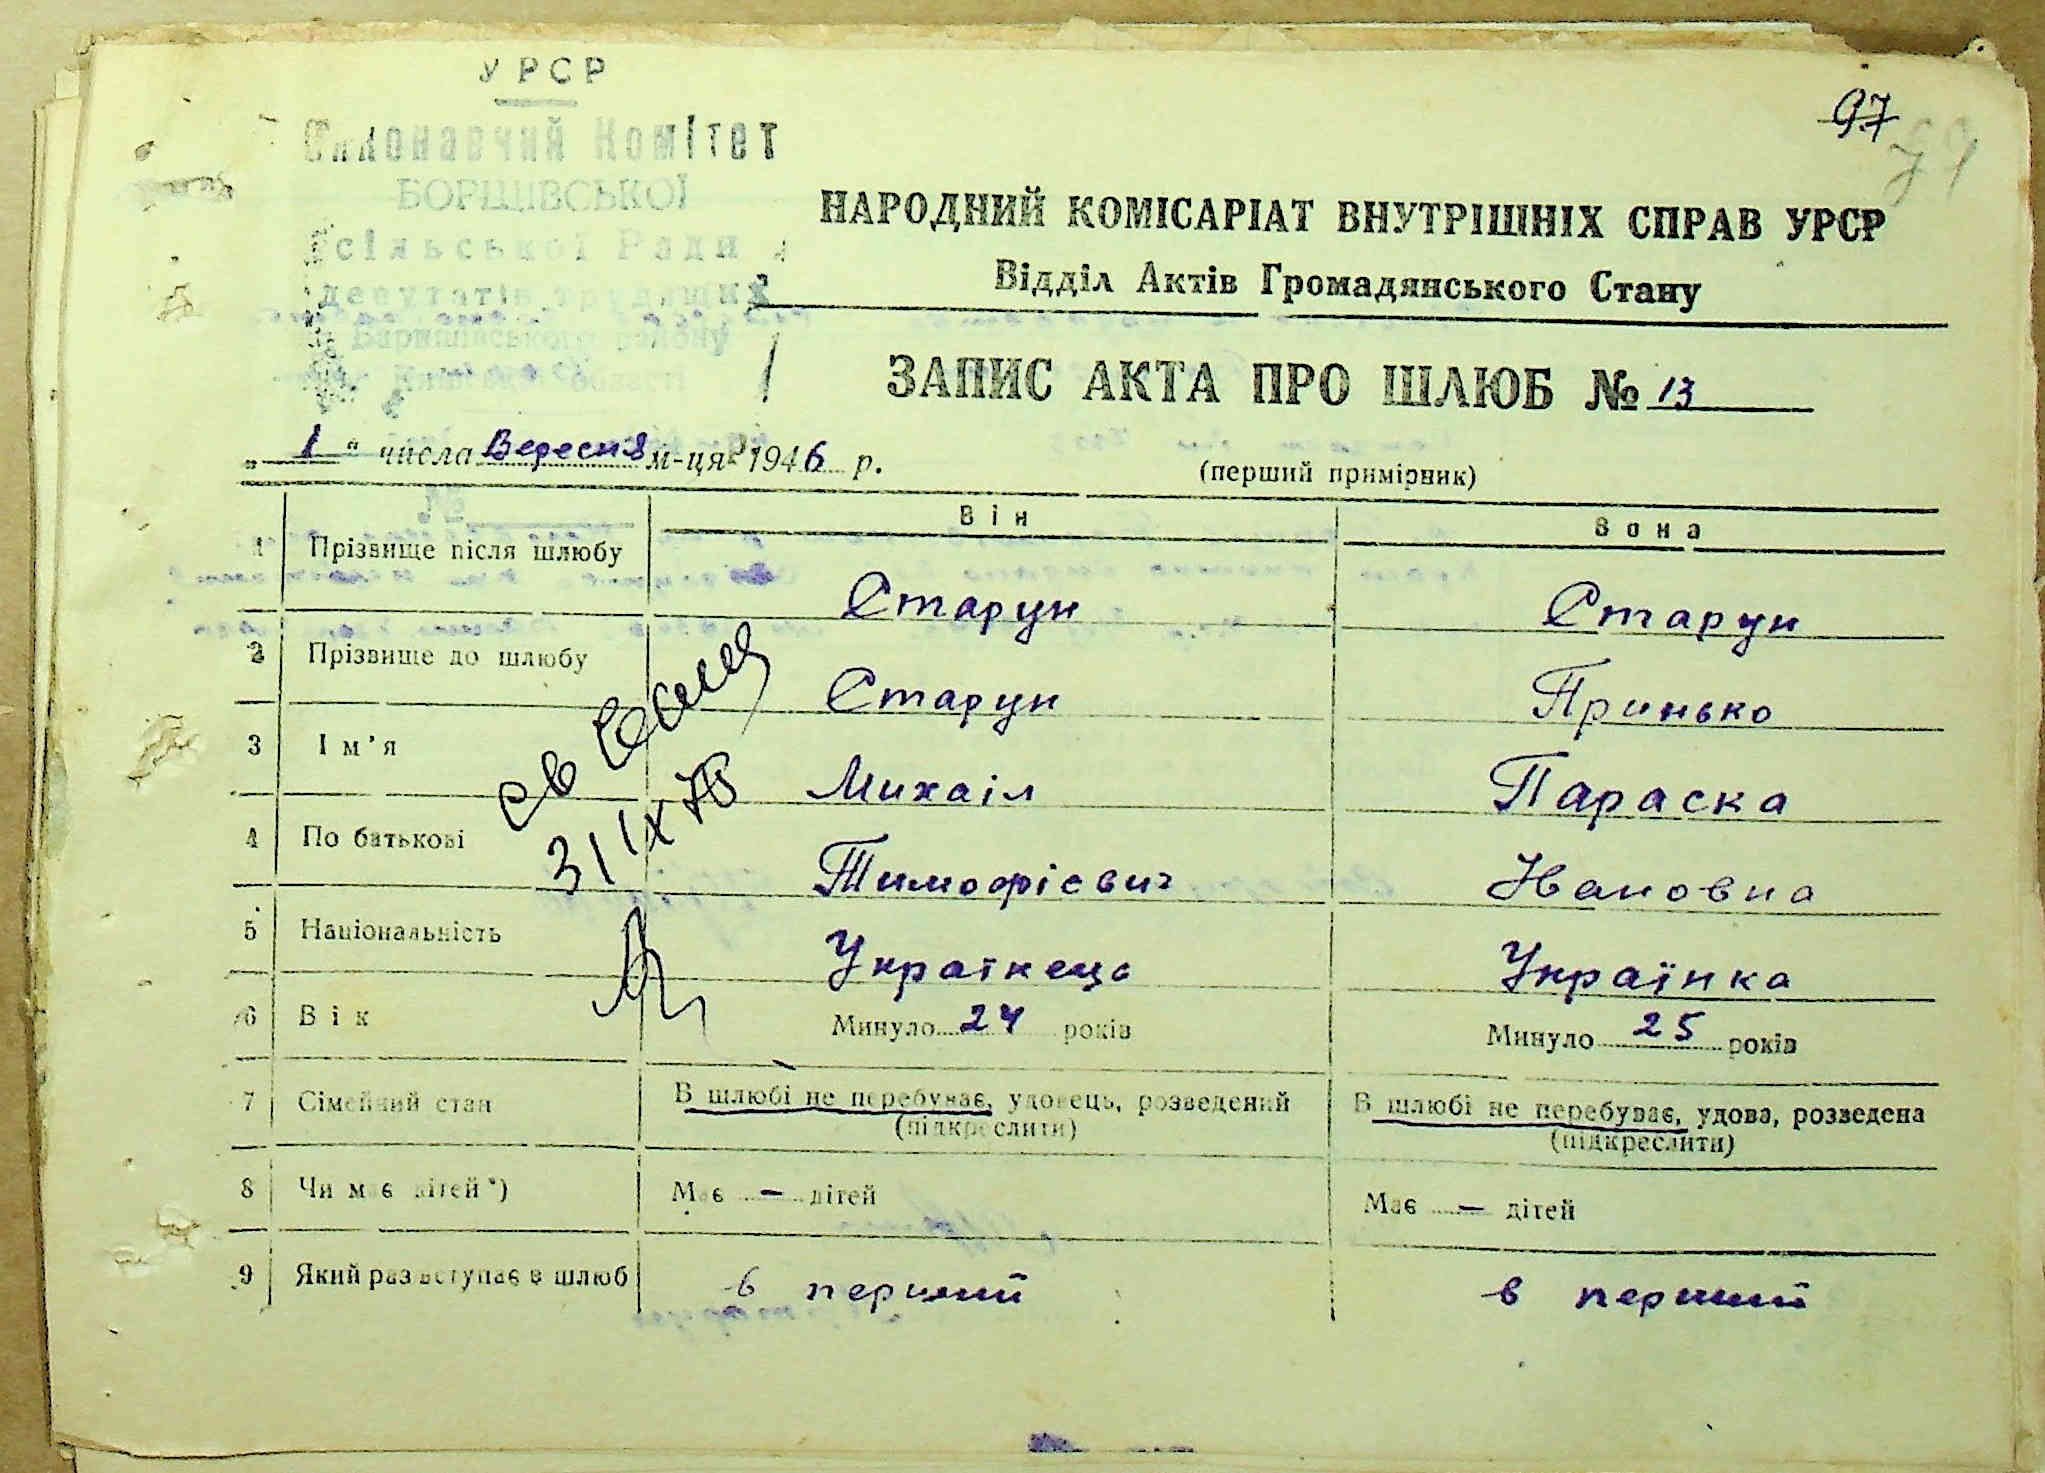 УРСР
Виконавчий Комітет
БОРЩІВСЬКОЇ
сільської Ради
депутатів трудящих
Баришівського району
Київської області
97
79
НАРОДНИЙ КОМІСАРІАТ ВНУТРІШНІХ СПРАВ УРСР
Відділ Актів Громадянського Стану
ЗАПИС АКТА ПРО ШЛЮБ № 13
„ 1 “ числа Вересня м-ця 1946 р.
(перший примірник)
№
Він Вона
1 Прізвище після шлюбу Старун Старун
2 Прізвище до шлюбу Старун Принько
3 Ім’я Михаіл Параска
4 По батькові Тимофієвич Івановна
5 Національність Українець Українка
6 Вік Минуло 24 років Минуло 25 років
7 Сімейний стан В шлюбі не перебуває, удовець, розведений В шлюбі не перебуває, удова, розведена
(підкреслити) (підкреслити)
8 Чи має дітей*) Має – дітей Має – дітей
9 Який раз вступає в шлюб в перший в перший